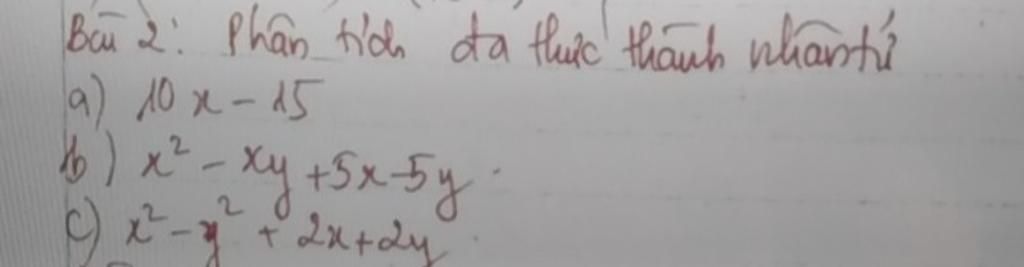 Bài 2: Phân tích đa thức thành nhân tử
a) 10x - 15
b) x² - xy + 5x - 5y.
c) x² - y² + 2x + 2y.